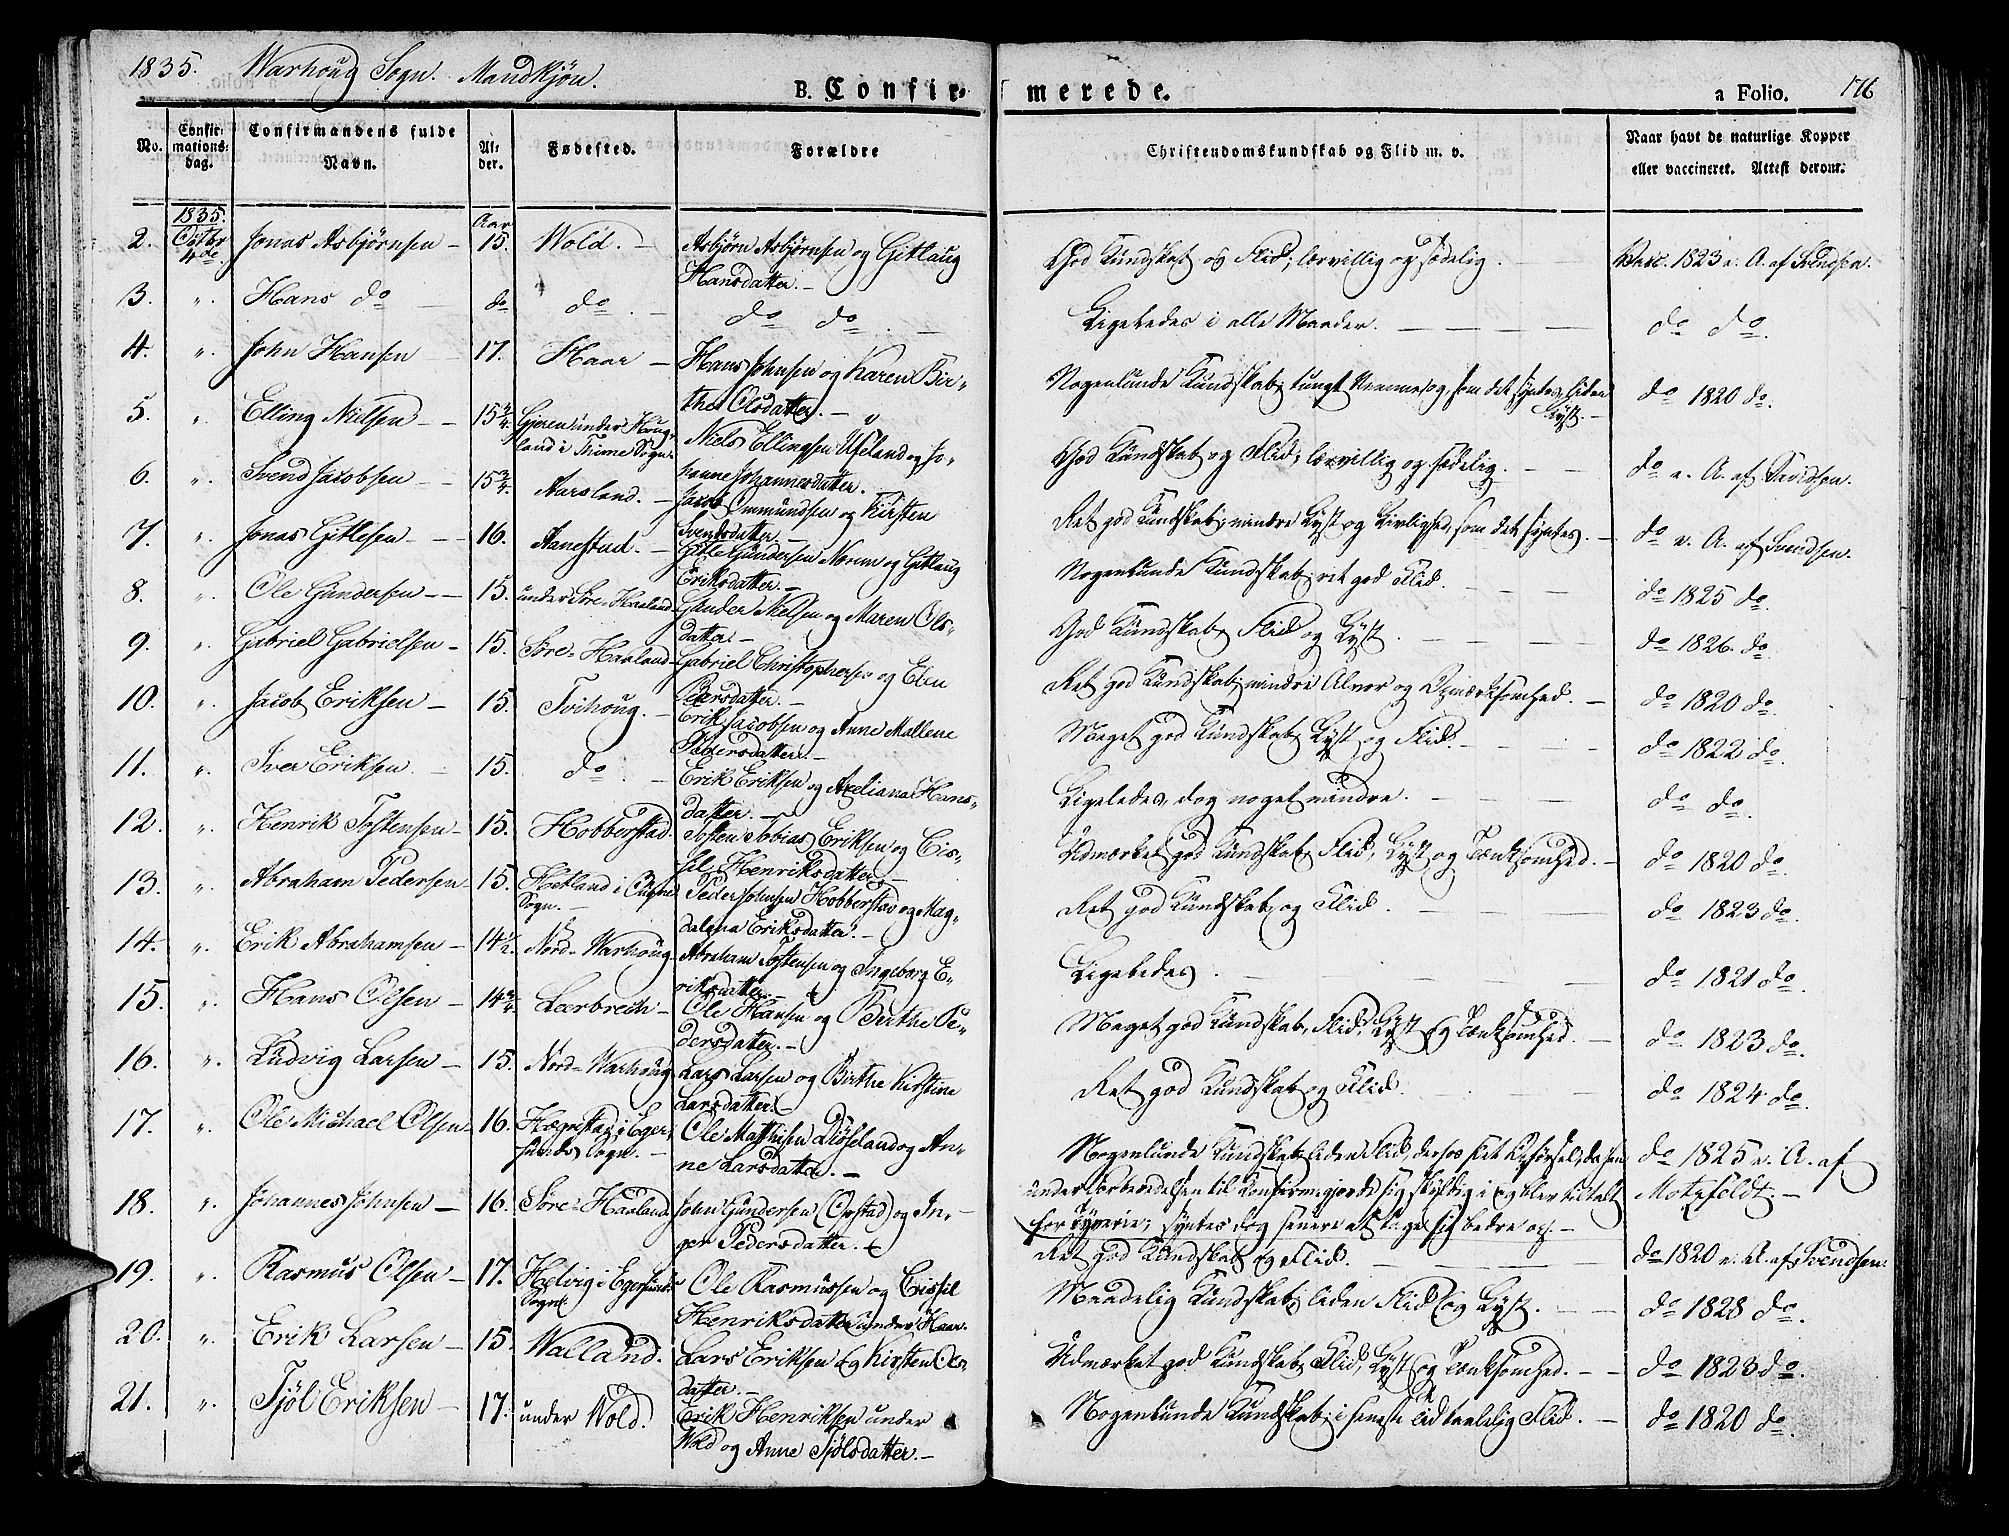 1835. Warhoug Sogn. Mandkjøn.
B. Confirmerede.
a Folio. 176
No. Confirmationsdag. Confirmandens fulde Navn. Alder. Fødested. Forældre Christendomskundskab og Flid m. v. Naar havt de naturlige Kopper eller vaccineret. Attest derom.
1835. Aar
2. Octbr 4de Jonas Asbjørnsen – 15. Wold. – Asbjørn Asbjørnsen og Gitlaug Hansdatter. – God Kundskab og Flid; lærvillig og sædelig. Vacc. 1823 e. A. af Svendsen.
3. „ Hans do do do. – do do. – Ligeledes i alle Maader. do do.
4. „ John Hansen – 17. Haar – Hans Johnsen og Karen Birthe Olsdatter. – Nogenlunde Kundskab; tungt Nemme og, som det syntes, liden Lyst. – do 1820 do.
5. „ Elling Nielsen – – 15 3/4. Gjeren under Hougland i Thime Sogn. Niels Ellingsen Useland og Johanne Johannesdatter. God Kundskab og Flid; lærvillig og sædelig. do e. A. af Davidsen.
6. „ Svend Jacobsen – – 15 3/4. Aarsland. – Jacob Ommundsen og Kirsten Svendsdatter. – Ret god Kundskab; mindre Lyst og Livlighed, som det syntes. – do e. A. af Svendsen.
7. „ Jonas Gitlesen – – 16. Aanestad. – Gitle Gundersen Norem og Gitlaug Eriksdatter. – Nogenlunde Kundskab; ret god Flid. do 1825 do.
8. „ Ole Gundersen – – 15. under Søre-Haaland Gunder Nielsen og Maren Olsdatter. – God Kundskab, Flid og Lyst. do 1826. do.
9. „ Gabriel Gabrielsen – 15. Søre-Haaland Gabriel Christophersen og Elen Peersdatter. – Ret god Kundskab; mindre Alvor og Opmærksomhed. – do 1820 do.
10. „ Jacob Eriksen – 15. Tvihoug. – Erik Jacobsen og Anne Mallene Pedersdatter. – Meget god Kundskab, Lyst og Flid. – do 1822 do.
11. „ Iver Eriksen. – 15. do. – Erik Eriksen og Axeliana Hansdatter. – Ligeledes, dog noget mindre. do do.
12. „ Henrik Tostensen – 15. Hobberstad. Tosten Tobias Eriksen og Cissil Henriksdatter. – Udmærket god Kundskab, Flid, Lyst og Tænksomhed. – do 1820 do.
13. „ Abraham Pedersen – 15. Hetland i Ougne Sogn. – Peder Johnsen Hobberstad og Magdalena Eriksdatter. – Ret god Kundskab og Flid. do 1823 do.
14. „ Erik Abrahamsen – 14 1/2. Nord-Warhoug Abraham Tostensen og Ingeborg Eriksdatter. – Ligeledes. do 1821 do.
15. „ Hans Olsen – 14 3/4. Leerbrech – Ole Hansen og Berthe Pedersdatter. – Meget god Kundskab, Flid, Lyst og Tænksomhed. – do 1823 do.
16. „ Ludvig Larsen – 15. Nord-Warhoug Lars Larsen og Birthe Kirstine Larsdatter. – Ret god Kundskab og Flid. do 1824 do.
17. „ Ole Michael Olsen 16. Hægrestad i Egersunds Sogn. – Ole Mathisen Diøseland og Anne Larsdatter. – Nogenlunde Kundskab; liden Flid, dersos slet Opførsel, da han under Forberedelsen til Confirm. gjorde sig skyldig i og blev tiltalt for Tyverie; syntes dog senere at tage sig bedre op. – do 1825 e. A. af Motzfeldt. –
18. „ Johannes Johnsen – 16. Søre-Haaland John Gundersen (Opstad) og Inger Pedersdatter. – Ret god Kundskab og Flid. do 1820 e. A. af Svendsen.
19. „ Rasmus Olsen – 17. Helvig i Egersunds Sogn Ole Rasmussen og Cissil Henriksdatter under Haar. Maadelig Kundskab; liden Flid og Lyst. do 1828 do.
20. „ Erik Larsen – 15. Walland. Lars Eriksen og Kirsten Olsdatter. – Udmærket god Kundskab, Flid, Lyst og Tænksomhed. – – do 1823 do.
21. „ Tjøl Eriksen – 17. under Wold. Erik Henriksen under Wold og Anne Tjølsdatter. – Nogenlunde Kundskab; i seneste Tid taalelig Flid. – do 1820 do.